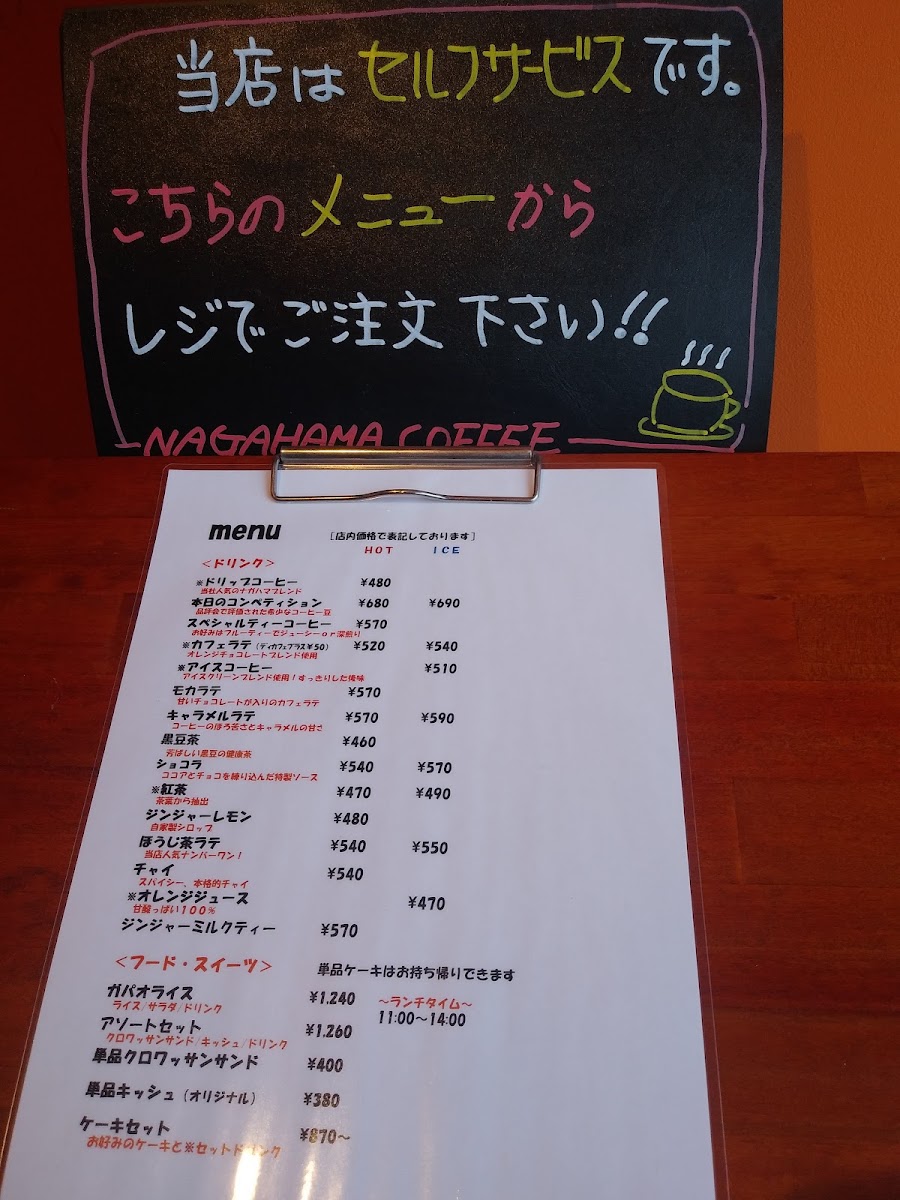 当店はセルフサービスです。
こちらのメニューから
レジでご注文下さい!!
NAGAHAMA COFFEE
menu [店内価格で表記しております]
HOT ICE
<ドリンク>
※ドリップコーヒー ¥480
当社人気のナガハマブレンド
本日のコンペティション ¥680 ¥690
品評会で評価された希少なコーヒー豆
スペシャルティーコーヒー ¥570
お好みはフルーティーでジューシーor深煎り
※カフェラテ(ディカフェプラス¥50) ¥520 ¥540
オレンジチョコレートブレンド使用
※アイスコーヒー ¥510
アイスクリーンブレンド使用!すっきりした後味
モカラテ ¥570
甘いチョコレートが入りのカフェラテ
キャラメルラテ ¥570 ¥590
コーヒーのほろ苦さとキャラメルの甘さ
黒豆茶 ¥460
芳ばしい黒豆の健康茶
ショコラ ¥540 ¥570
ココアとチョコを練り込んだ特製ソース
※紅茶 ¥470 ¥490
茶葉から抽出
ジンジャーレモン ¥480
自家製シロップ
ほうじ茶ラテ ¥540 ¥550
当店人気ナンバーワン!
チャイ ¥540
スパイシー、本格的チャイ
※オレンジジュース ¥470
甘酸っぱい100%
ジンジャーミルクティー ¥570
<フード・スイーツ> 単品ケーキはお持ち帰りできます
ガパオライス ¥1.240 ~ランチタイム~
ライス/サラダ/ドリンク 11:00~14:00
アソートセット ¥1.260
クロワッサンサンド/キッシュ/ドリンク
単品クロワッサンサンド ¥400
単品キッシュ(オリジナル) ¥380
ケーキセット ¥870~
お好みのケーキと※セットドリンク